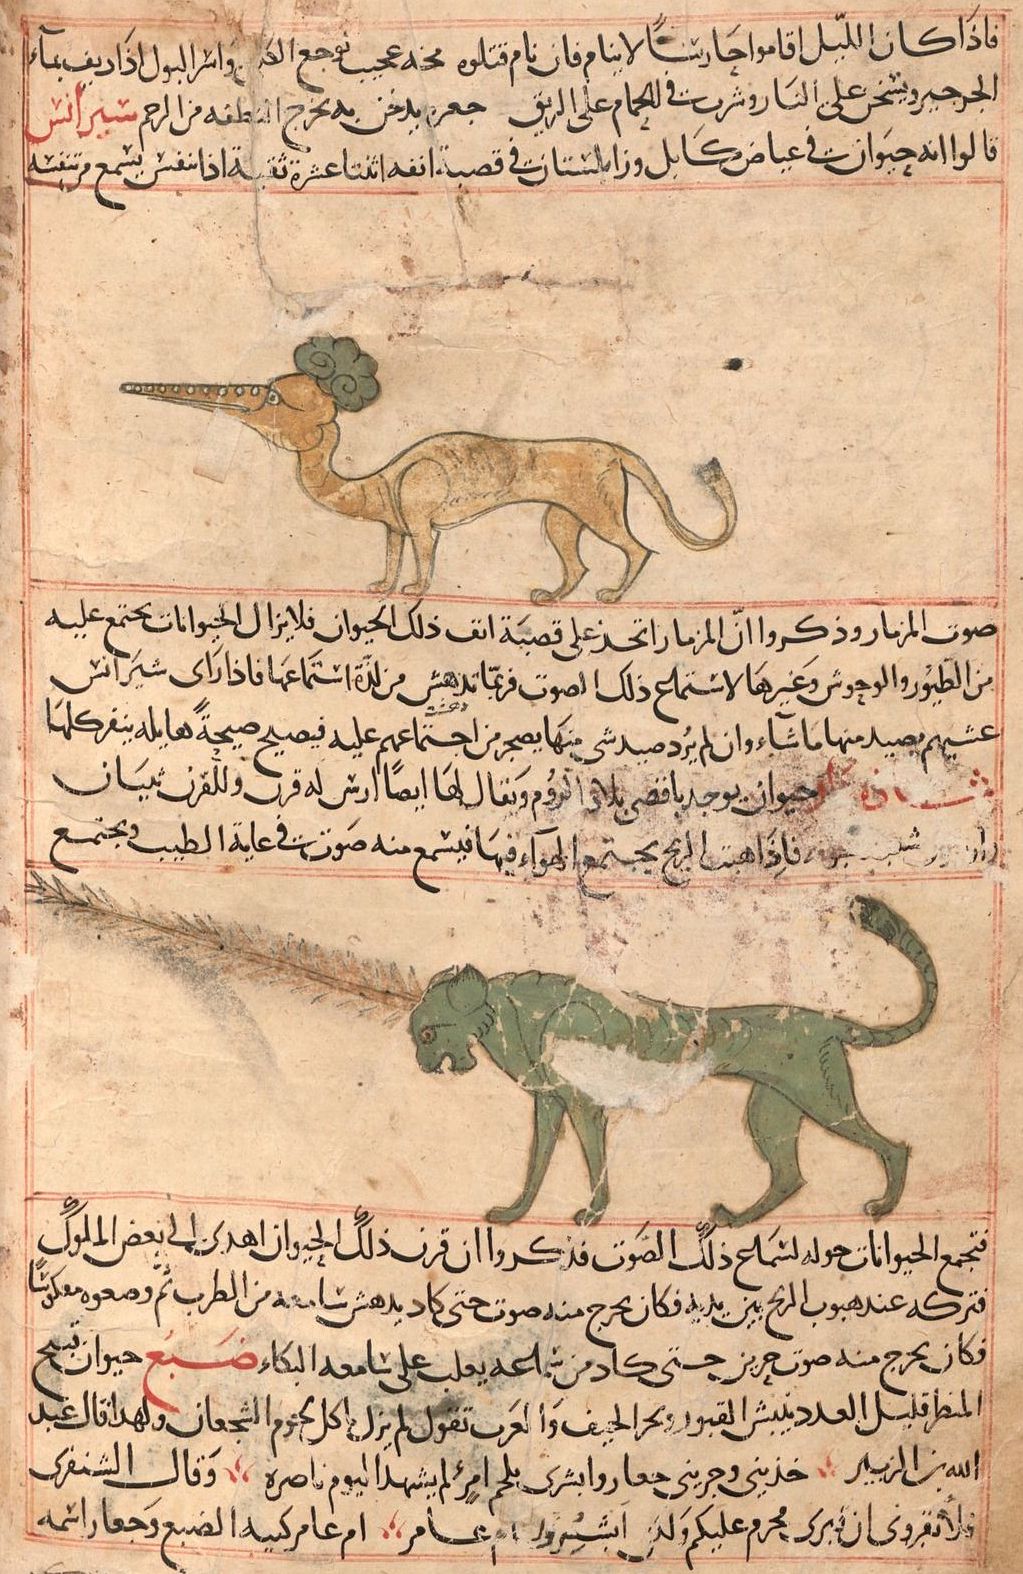 فاذا كان الليل اقاموا حارسا لا ينام فان نام قتلوه مخه عجيب لوجع واسر البول اذا ديف بماء
الجرجير ويسخن على النار وشرب في الحمام على الريق جعره يدخن به يخرج النطفه من الرحم شيرانس
قالوا انه حيوان في غياض كابل وزابلستان في قصبة انفه اثنتا عشرة ثقبة اذا تنفس يسمع من تنفسه
صوت المزمار وذكروا انّ المزمار اتخذ على قصبة انف ذلك الحيوان فلا يزال الحيوانات يجتمع عليه
من الطيور والوحوش وغيرها لاستماع ذلك الصوت فربّما تدهش من لذّة استماعها فاذا راى شيرانس
عشيهم يصيد منها ما شاء وان لم يرد صيد شي منها يضجر من اجتماعهم عليه فيصيح صيحةً هايله ينفر كلها
حيوان يوجد باقصى بلاد الروم ويقال لها ايضا ارس له قرن وللقرن
فاذا هبت الريح يجتمع الهواء فيها فيسمع منه صوت في غاية الطيب ويجتمع
فتجمع الحيوانات حوله لسماع ذلك الصوت فذكروا ان قرن ذلك الحيوان اهدى الى بعض الملوك
فتركه عند هبوب الريح بين يديه فكان يخرج منه صوت حتى كاد يدهش سامعه من الطرب ثمّ وضعوه معكوسًا
فكان يخرج منه صوت حزين حتى كاد من يغلب على سامعه البكاء ضبع حيوان قبيح
المنظر قليل العدد ينبش القبور ويخر الجيف والعرب تقول لم يزل ياكل لحوم الشجعان ولهذا قال عبد
الله بن الزبير خذيني وجريني جعار وابشرى بلحم امرئ لم يشهد اليوم ناصره وقال الشنفرى
ان قبرى محرم عليكم ولكن ابشرى ام عامر ام عامر كنيه الضبع وجعار اسمه